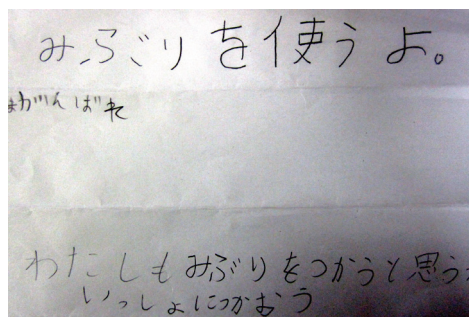 みぶりを使うよ。
がんばれ
わたしもみぶりをつかうと思う
いっしょにつかおう